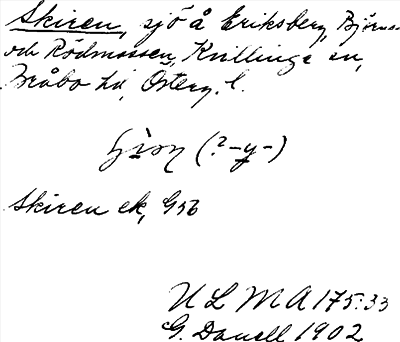 Skiren, sjö å Eriksberg, Björns-
och Rödmossen, Kvillinge sn,
Bråbo hd, Österg. l.
(?-y-)
Skiren ek, G56
ULMA 175:33
G. Danell 1902